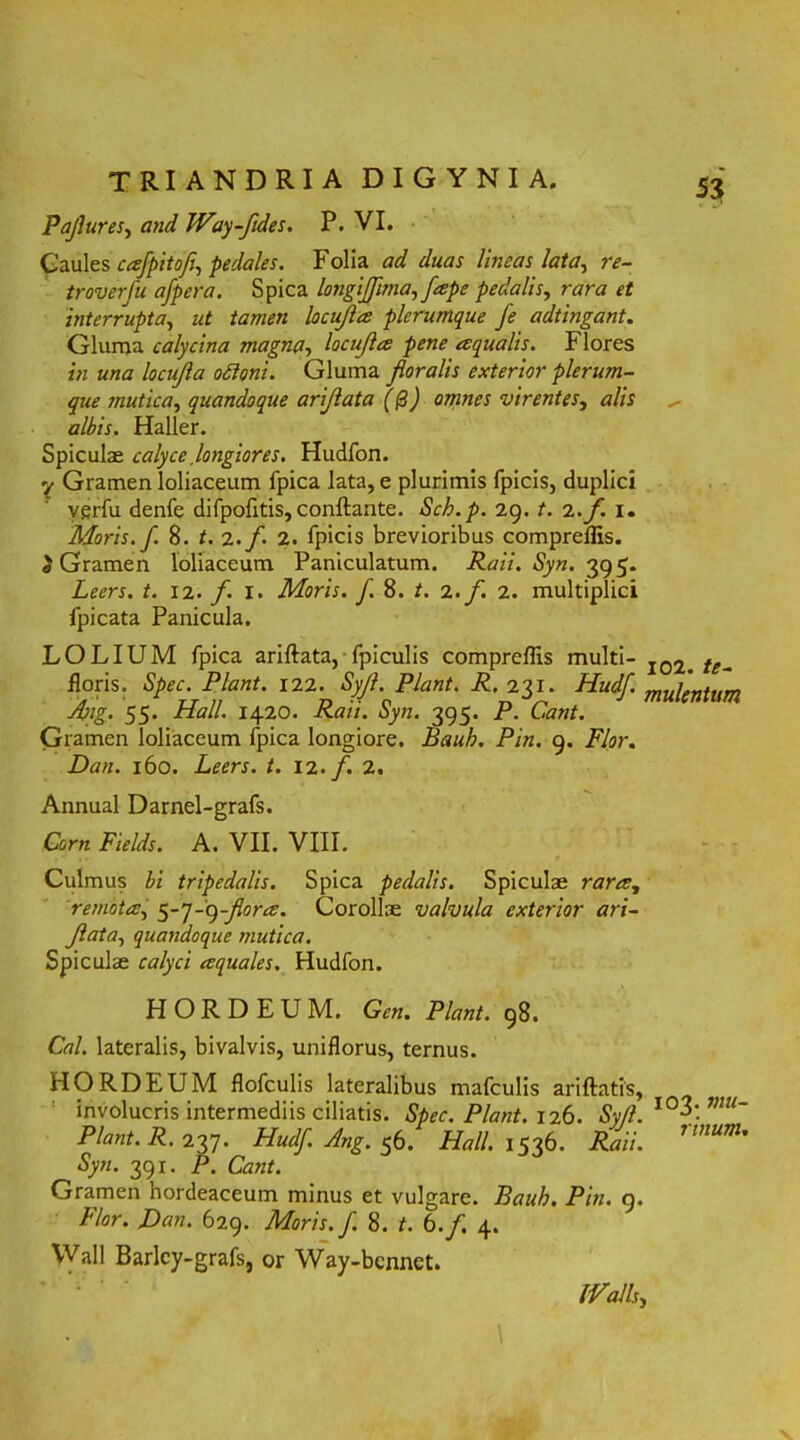 TRIANDRIA DIGYNIA. 53
Paſtures, and Way-ſides. P. VI.
Çaules cæſpitoſi, pedales. Folia ad duas lineas lata, re-
troverſu aſpera. Spica longiſſima, ſæpe pedalis, rara et
interrupta, ut tamen locuſtæ plerumque ſe adtingant.
Gluma calycina magna, locuſtæ pene æqualis. Flores
in una locuſta octoni. Gluma floralis exterior plerum-
que mutica, quandoque ariſtata (β) omnes virentes, alis
albis. Haller.
Spiculæ calyce longiores. Hudſon.
γ Gramen loliaceum ſpica lata, e plurimis ſpicis, duplici
verſu denſe diſpoſitis, conſtante. Sch. p. 29. t. 2. f. 1.
Moris. f. 8. t. 2. f. 2. ſpicis brevioribus compreſſis.
δ Gramen loliaceum Paniculatum. Raii. Syn. 395.
Leers. t. 12. f. 1. Moris. f. 8. t. 2. f. 2. multiplici
ſpicata Panicula.
LOLIUM ſpica ariſtata, ſpiculis compreſſis multi- 102. te-
floris. Spec. Plant. 122. Syſt. Plant. R. 231. Hudſ. mulentum
Ang. 55. Hall. 1420. Raii. Syn. 395. P. Cant.
Gramen loliaceum ſpica longiore. Bauh. Pin. 9. Flor.
Dan. 160. Leers. t. 12. f. 2.
Annual Darnel-graſs.
Corn Fields. A. VII. VIII.
Culmus bi tripedalis. Spica pedalis. Spiculæ raræ,
remotæ, 5-7-9-floræ. Corollæ valvula exterior ari-
ſtata, quandoque mutica.
Spiculæ calyci æquales. Hudſon.
HORDEUM. Gen. Plant. 98.
Cal. lateralis, bivalvis, uniflorus, ternus.
HORDEUM floſculis lateralibus maſculis ariſtatis, 103. mu-
involucris intermediis ciliatis. Spec. Plant. 126. Syſt. rinum.
Plant. R. 237. Hudſ. Ang. 56. Hall. 1536. Raii.
Syn. 391. P. Cant.
Gramen hordeaceum minus et vulgare. Bauh. Pin. 9.
Flor. Dan. 629. Moris. f. 8. t. 6. f. 4.
Wall Barley-graſs, or Way-bennet.
Walls,